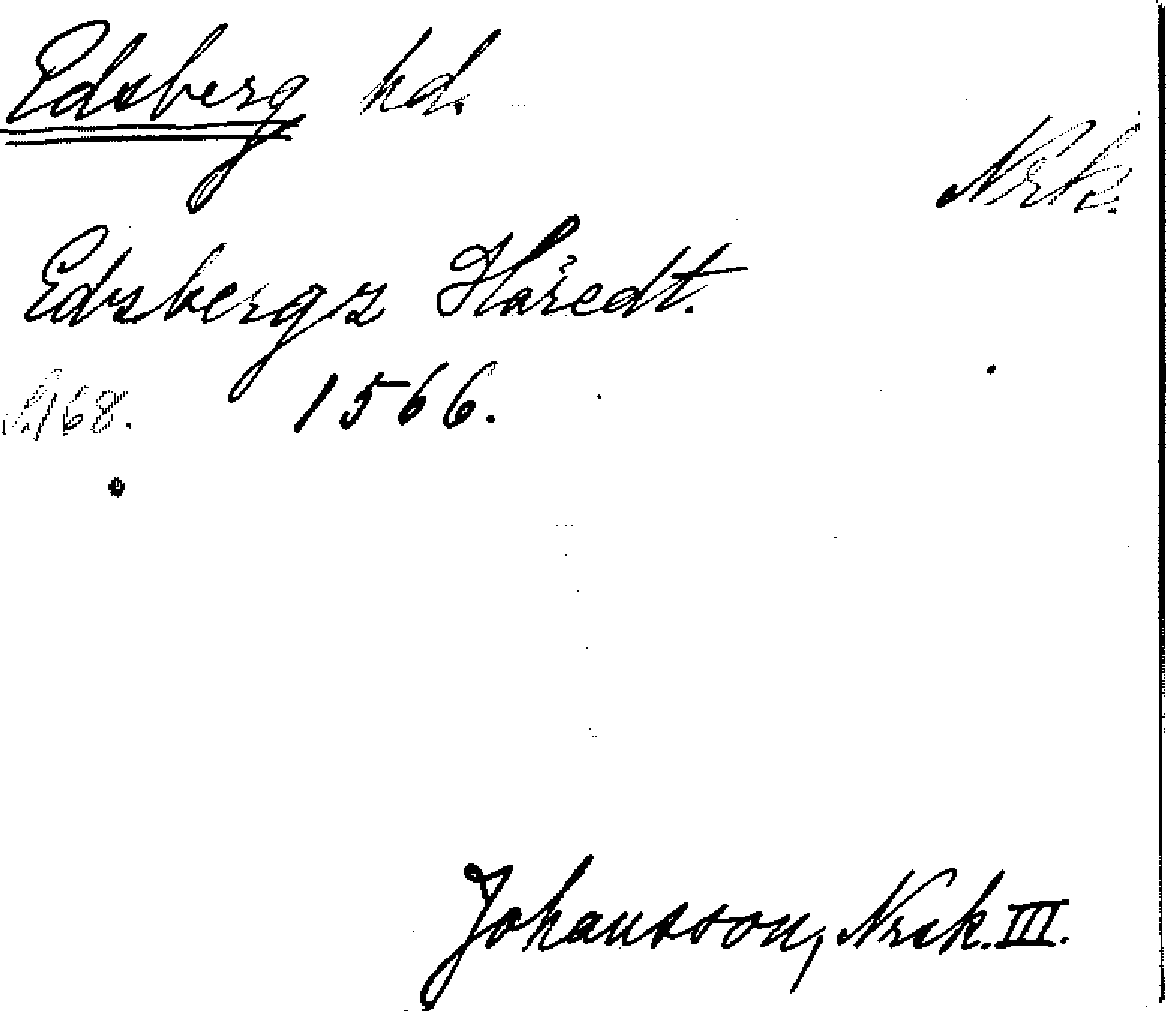 Edsberg hd.
Nrk.
Edsbergz Håredt.
S. 168. 1566.
Johansson, Nrk. III.